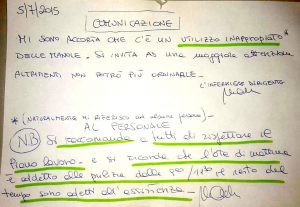 5/7/2015
COMUNICAZIONE
MI SONO ACCORTA CHE C'È UN UTILIZZO INAPPROPIATO*
DELLE MANOPOLE. SI INVITA AD UNA MAGGIORE ATTENZIONE
ALTRIMENTI NON POTRÒ PIÙ ORDINARLE.
L'INFERMIERE DIRIGENTE
*(NATURALMENTE MI RIFERISCO AD ALCUNE PERSONE)
AL PERSONALE
NB Si raccomanda a tutti di rispettare il
Piano lavoro e si ricorda che l'ota di mattina
è addetto alle pulizie dalle 11 il resto del
tempo sono addetti all'assistenza